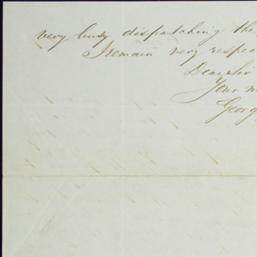 very busy dispatching the
I remain very respec
Dear Sir
Your
Georg